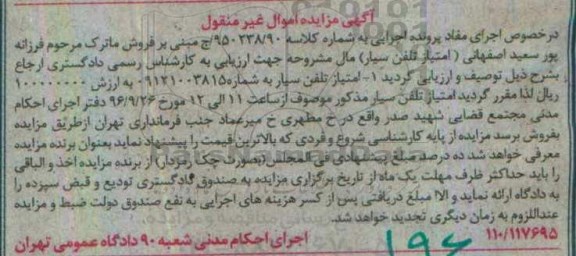 آگهی مزایده اموال غیر منقول
درخصوص اجرای مفاد پرونده اجرایی به شماره کلاسه ۹۵۰۲۳۸/۹۰/ج مبنی بر فروش ماترک مرحوم فرزانه
پور سعید اصفهانی ( امتیاز تلفن سیار) مال مشروحه جهت ارزیابی به کارشناس رسمی دادگستری ارجاع
بشرح ذیل توصیف و ارزیابی گردید ۱- امتیاز تلفن سیار به شماره۰۹۱۲۱۰۰۳۸۱۵ به ارزش ۱۰۰۰۰۰۰۰۰
ریال لذا مقرر گردید امتیاز تلفن سیار مذکور موصوف از ساعت ۱۱ الی ۱۲ مورخ ۹۶/۹/۲۶ دفتر اجرای احکام
مدنی مجتمع قضایی شهید صدر واقع در خ مطهری خ میرعماد جنب فرمانداری تهران ازطریق مزایده
بفروش برسد مزایده از پایه کارشناسی شروع و فردی که بالاترین قیمت را پیشنهاد نماید بعنوان برنده مزایده
معرفی خواهد شد ده درصد مبلغ پیشنهادی فی المجلس (بصورت چک رمزدار) از برنده مزایده اخذ و الباقی
را باید حداکثر ظرف مهلت یک ماه از تاریخ برگزاری مزایده به صندوق دادگستری تودیع و قبض سپرده را
به دادگاه ارائه نماید و الا مبلغ دریافتی پس از کسر هزینه های اجرایی به نفع صندوق دولت ضبط و مزایده
عنداللزوم به زمان دیگری تجدید خواهد شد.
۱۱۰/۱۱۷۶۹۵ ۱۹۶ اجرای احکام مدنی شعبه ۹۰ دادگاه عمومی تهران